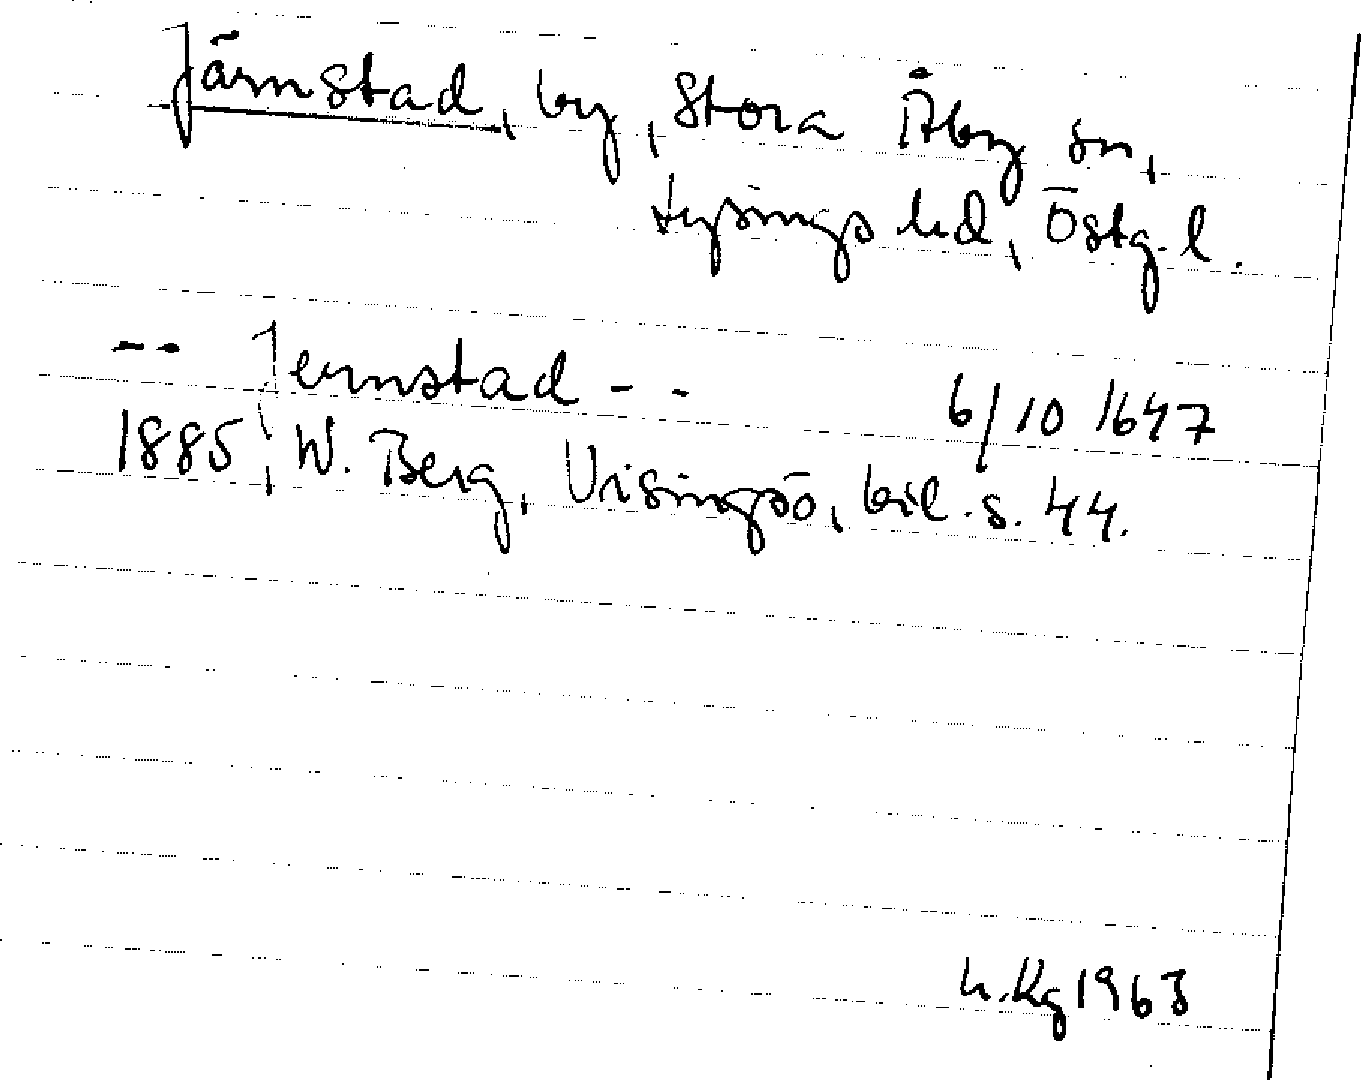 Järnstad, by, Stora Åby sn,
Lysings hd, Östg. l.
-- Jernstad -- 6/10 1647
1885, W. Berg, Visingsö, bil. s. 44.
h. Kg 1963